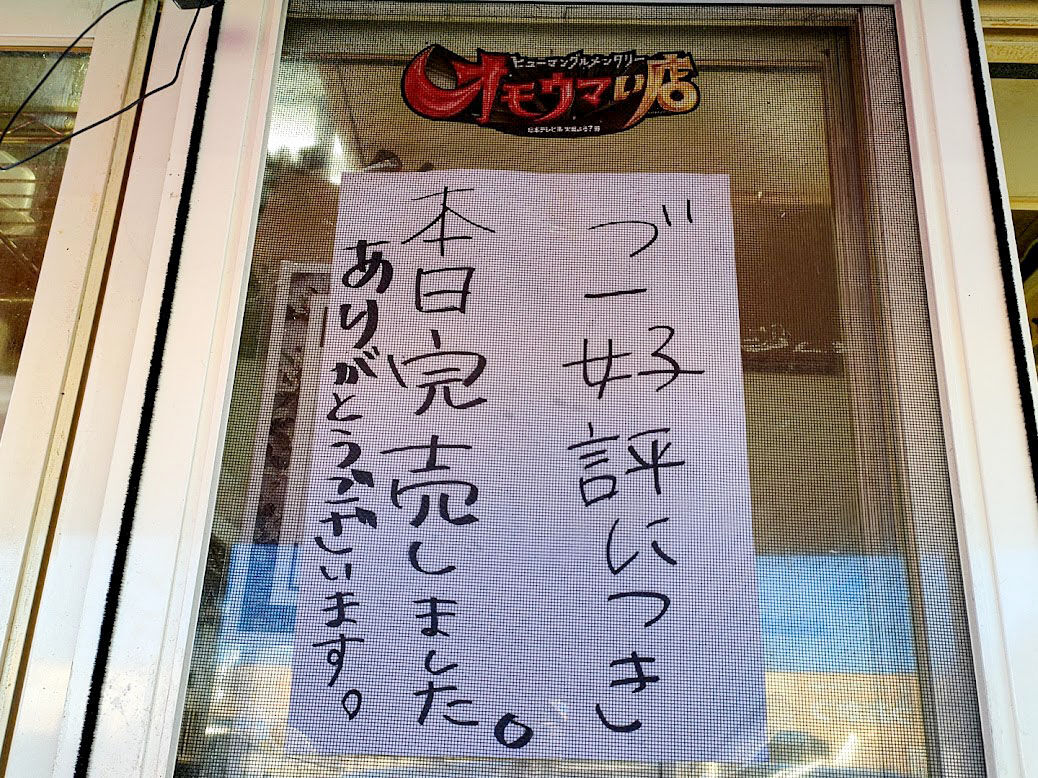 ヒューマングルメンタリー
オモウマい店
日本テレビ系 火曜よる7時
ご好評につき
本日完売しました。
ありがとうございます。